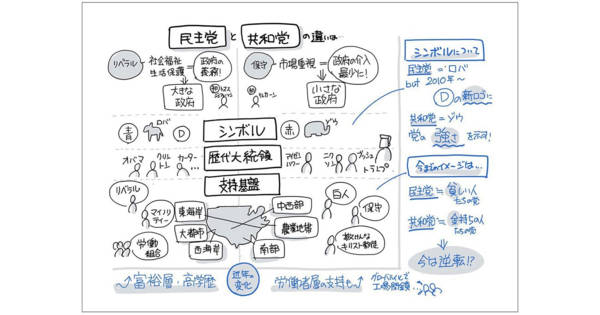 民主党 と 共和党 の違いは…
リベラル
社会福祉
生活保護
=
政府の
義務!
大きな
政府
保守
市場重視
=
政府の介入
最少化!
小さな
政府
シンボル
青
ロバ
D
赤
ゾウ
歴代大統領
オバマ
クリン
トン
カーター…
アイゼン
ハワー
ニク
ソン
ブッシュ
トランプ
支持基盤
リベラル
マイノリ
ティー
労働
組合
東海岸
大都市
西海岸
中西部
農業地帯
南部
白人
保守
キリスト教徒
富裕層・高学歴
近年の
変化
労働者層の支持も
グローバル化で
工場閉鎖…
シンボルについて
民主党 = ロバ
but 2010年〜
Dの新ロゴに
共和党 = ゾウ
党の強さを示す!
今までのイメージは…
民主党 ≒ 貧しい人
たちの党
共和党 ≒ 金持ちの人
たちの党
今は逆転!?